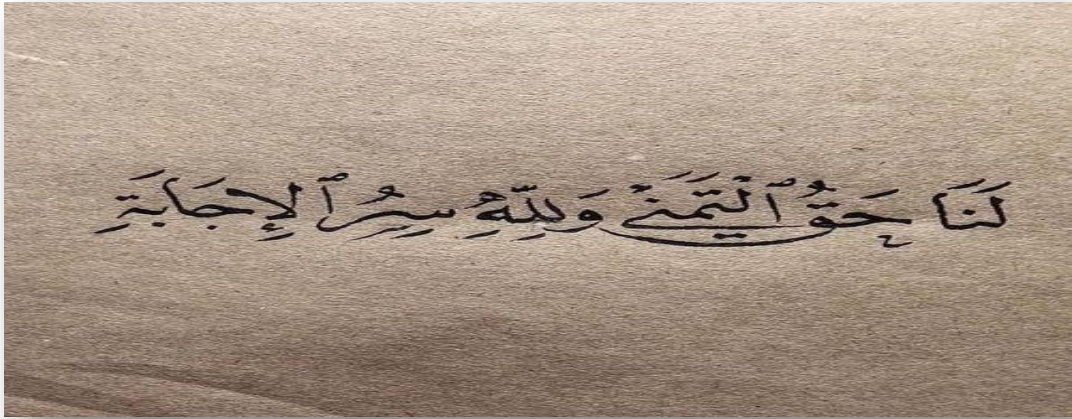 لَنَا حَقُّ ٱلْتَّمَنَّے وَلِلّهِ سِرُّ ٱلإِجَابَةِ